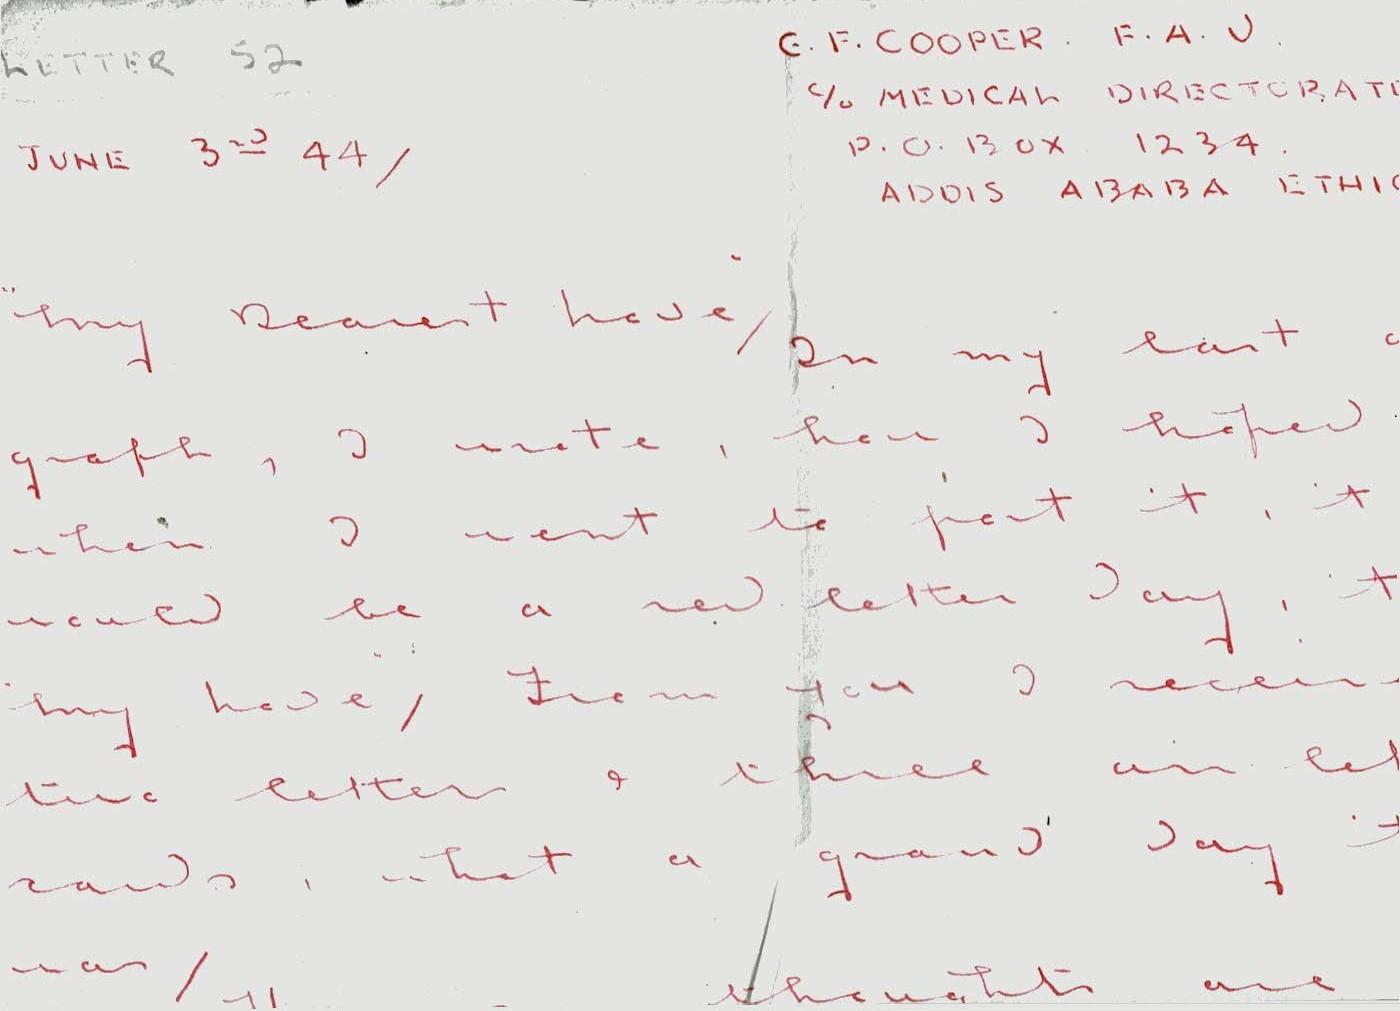 LETTER 52
G. F. COOPER. F. A. U.
c/o MEDICAL DIRECTORATE
JUNE 3RD 44/
P. O. BOX 1234.
ADDIS ABABA ETHIO
My Dearest Love/
In my last
graph, I wrote, how I hoped
when I went to post it, it
would be a red letter day, it
My Love/ From you I receiv
two letters & three air let
cards, what a grand day it
was/
thoughts are